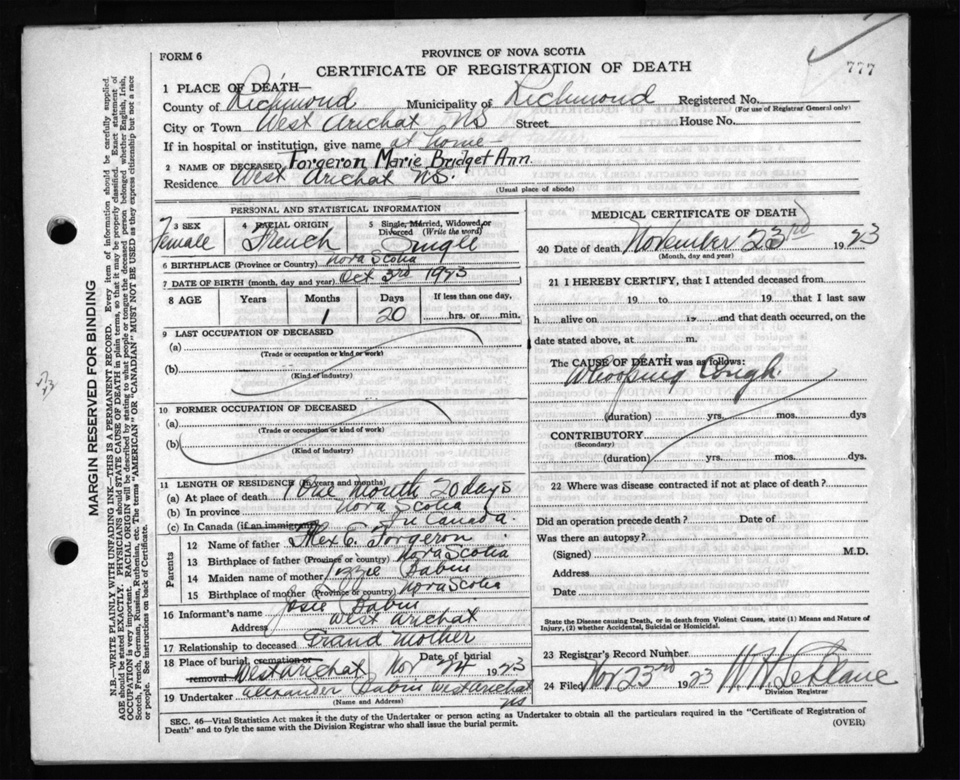 FORM 6
PROVINCE OF NOVA SCOTIA
CERTIFICATE OF REGISTRATION OF DEATH
777
1 PLACE OF DEATH—
County of Richmond Municipality of Richmond Registered No.
(For use of Registrar General only)
City or Town West Arichat NS Street House No.
If in hospital or institution, give name at home
2 NAME OF DECEASED Forgeron Marie Bridget Ann
Residence West Arichat NS.
(Usual place of abode)
PERSONAL AND STATISTICAL INFORMATION
3 SEX 4 RACIAL ORIGIN 5 Single, Married, Widowed or Divorced (Write the word)
Female French Single
6 BIRTHPLACE (Province or Country) Nova Scotia
7 DATE OF BIRTH (month, day and year) Oct 3rd 1923
8 AGE Years Months Days If less than one day,
1 20 hrs. or min.
9 LAST OCCUPATION OF DECEASED
(a)
(Trade or occupation or kind of work)
(b)
(Kind of industry)
10 FORMER OCCUPATION OF DECEASED
(a)
(Trade or occupation or kind of work)
(b)
(Kind of industry)
11 LENGTH OF RESIDENCE (In years and months)
(a) At place of death One Month 20 days
(b) In province Nova Scotia
(c) In Canada (if an immigrant) In Canada.
Parents
12 Name of father Alex C. Forgeron
13 Birthplace of father (Province or country) Nova Scotia
14 Maiden name of mother Lizzie Babin
15 Birthplace of mother (Province or country) Nova Scotia
16 Informant's name Josie Babin
Address West Arichat
17 Relationship to deceased Grand Mother
18 Place of burial, cremation or removal West Arichat Date of burial Nov 24 1923
19 Undertaker Alexander Babin West Arichat NS
(Name and Address)
MEDICAL CERTIFICATE OF DEATH
20 Date of death November 23rd 1923
(Month, day and year)
21 I HEREBY CERTIFY, that I attended deceased from
19 to 19 that I last saw
h alive on 19 and that death occurred, on the
date stated above, at m.
The CAUSE OF DEATH was as follows:
Whooping Cough.
(duration) yrs. mos. dys
CONTRIBUTORY
(Secondary)
(duration) yrs. mos. dys.
22 Where was disease contracted if not at place of death?
Did an operation precede death? Date of
Was there an autopsy?
(Signed) M.D.
Address
Date
State the Disease causing Death, or in death from Violent Causes, state (1) Means and Nature of Injury, (2) whether Accidental, Suicidal or Homicidal.
23 Registrar's Record Number
24 Filed Nov 23rd 1923 W. H. LeBlanc
Division Registrar
SEC. 46—Vital Statistics Act makes it the duty of the Undertaker or person acting as Undertaker to obtain all the particulars required in the "Certificate of Registration of
Death" and to fyle the same with the Division Registrar who shall issue the burial permit.
(OVER)
MARGIN RESERVED FOR BINDING
N.B.—WRITE PLAINLY WITH UNFADING INK—THIS IS A PERMANENT RECORD. Every item of information should be carefully supplied.
AGE should be stated EXACTLY. PHYSICIANS should STATE CAUSE OF DEATH in plain terms, so that it may be properly classified. Exact statement of
OCCUPATION is very important. RACIAL ORIGIN will be described by stating to what people or tongue the deceased person belonged whether English, Irish,
Scotch, French, German, Russian, Ruthenian, etc. The terms "AMERICAN" OR "CANADIAN" MUST NOT BE USED as they express citizenship but not a race
or people. See instructions on back of Certificate.